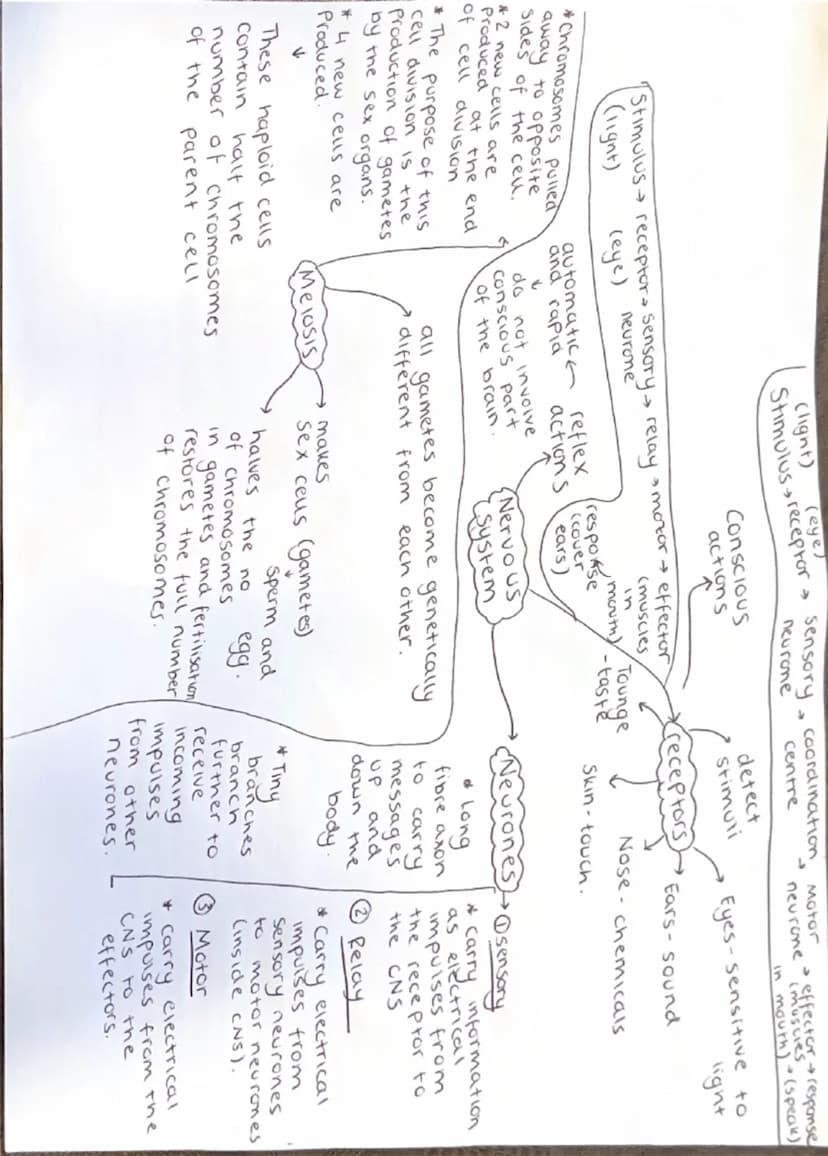 (light) (eye)
Stimulus → receptor → sensory → coordination → motor → effector → response
neurone centre neurone (muscles (speak)
in mouth) →
Conscious
actions
detect
stimuli
Eyes - sensitive to
light
receptors
Ears - sound
Nose - chemicals
Skin - touch.
Tounge
- taste
Stimulus → receptor → sensory → relay → motor → effector
(light) (eye) neurone (muscles
in
mouth)
response
(cover
ears)
Nervous
system
reflex
actions
automatic
and rapid
↓
do not involve
conscious part
of the brain.
Neurones
→ ① sensory
* carry information
as electrical
impulses from
the receptor to
the CNS
② Relay
* Carry electrical
impulses from
sensory neurones
to motor neurones
(inside CNS).
③ Motor
* carry electrical
impulses from the
CNS to the
effectors.
* Long
fibre axon
to carry
messages
up and
down the
body.
* Tiny
branches
branch
further to
receive
incoming
impulses
from other
neurones.
* Chromosomes pulled
away to opposite
sides of the cell.
* 2 new cells are
produced at the end
of cell division
* The purpose of this
cell division is the
production of gametes
by the sex organs.
* 4 new cells are
produced.
↓
These haploid cells
contain half the
number of chromosomes
of the parent cell
Meiosis
all gametes become genetically
different from each other.
makes
sex cells (gametes)
↓
sperm and
egg.
halves the no
of chromosomes
in gametes and fertilisation
restores the full number
of chromosomes.